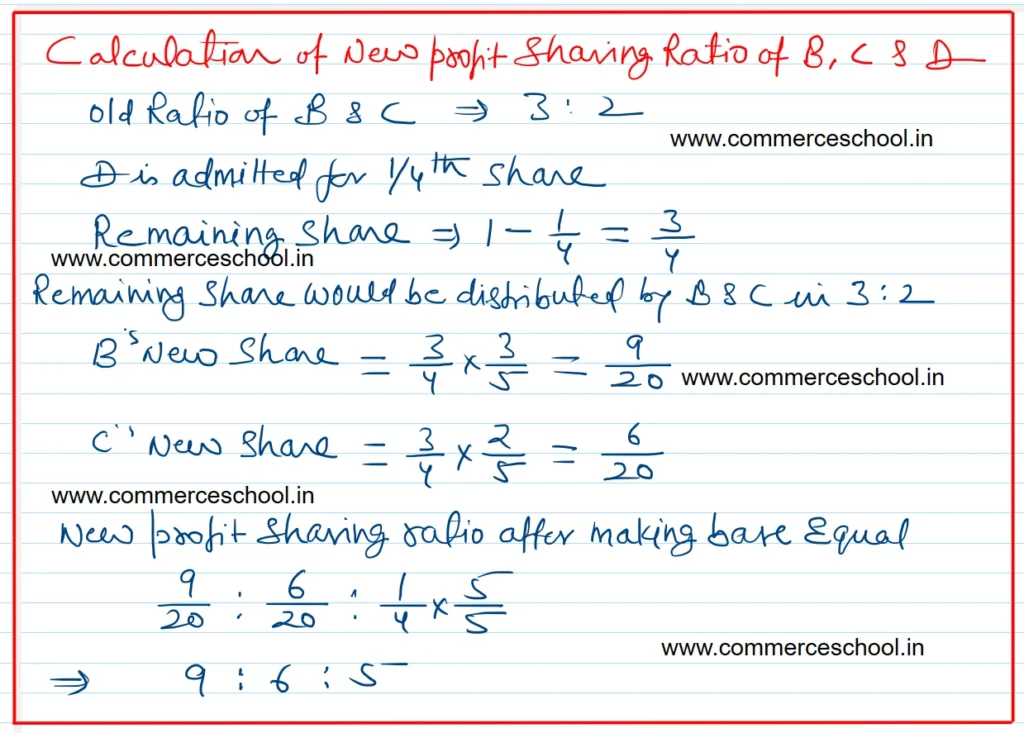 Calculation of New profit Sharing Ratio of B, C & D
Old Ratio of B & C ⇒ 3 : 2
www.commerceschool.in
D is admitted for 1/4th share
Remaining Share ⇒ 1 - 1/4 = 3/4
www.commerceschool.in
Remaining Share would be distributed by B & C in 3 : 2
B's New Share = 3/4 × 3/5 = 9/20
www.commerceschool.in
C's New Share = 3/4 × 2/5 = 6/20
www.commerceschool.in
New profit Sharing ratio after making base Equal
9/20 : 6/20 : 1/4 × 5/5
www.commerceschool.in
⇒ 9 : 6 : 5